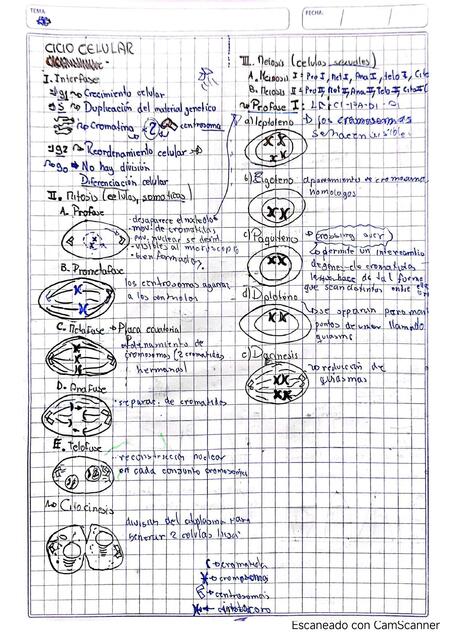 TEMA:
FECHA:
CICLO CELULAR
I. Interfase
G1 Crecimiento celular
S Duplicación del material genético
Cromatina centrosoma
G2 Reordenamiento celular
G0 No hay división
Diferenciación celular
II. Mitosis (celulas, somaticas)
A. Profase
desaparece el nucleolo
mov. de cromatidas
nuclear se
visibles al microscopio
bien formados
B. Prometafase
los centrosomas agarran
a los
C. Metafase → Placa ecuatorial
ordenamiento de
cromosomas (2 cromatidas
hermanas)
D. Anafase
separac. de cromatidas
E. Telofase
reconstrucción nuclear
en cada conjunto cromosomico
Citocinesis
division del citoplasma para
generar 2 celulas hijas
cromatida
cromosoma
centrosomas
III. Meiosis (celulas sexuales)
A. Meiosis I = Pro I, Met I, Ana I, Telo I, Cito
B. Meiosis II = Pro II, Met II, Ana II, Telo II, Cito
Profase I:
a) Leptoteno
los cromosomas
se hacen visibles
b) Zigoteno
apareamiento de cromosomas
homologos
c) Paquiteno
crossing over
permite un intercambio
de cromatidas
de tal forma
que sean distintos entre
d) Diploteno
se separan pero
puntos de union llamado
quiasmas
e) Diacinesis
reducción de
quiasmas
Escaneado con CamScanner